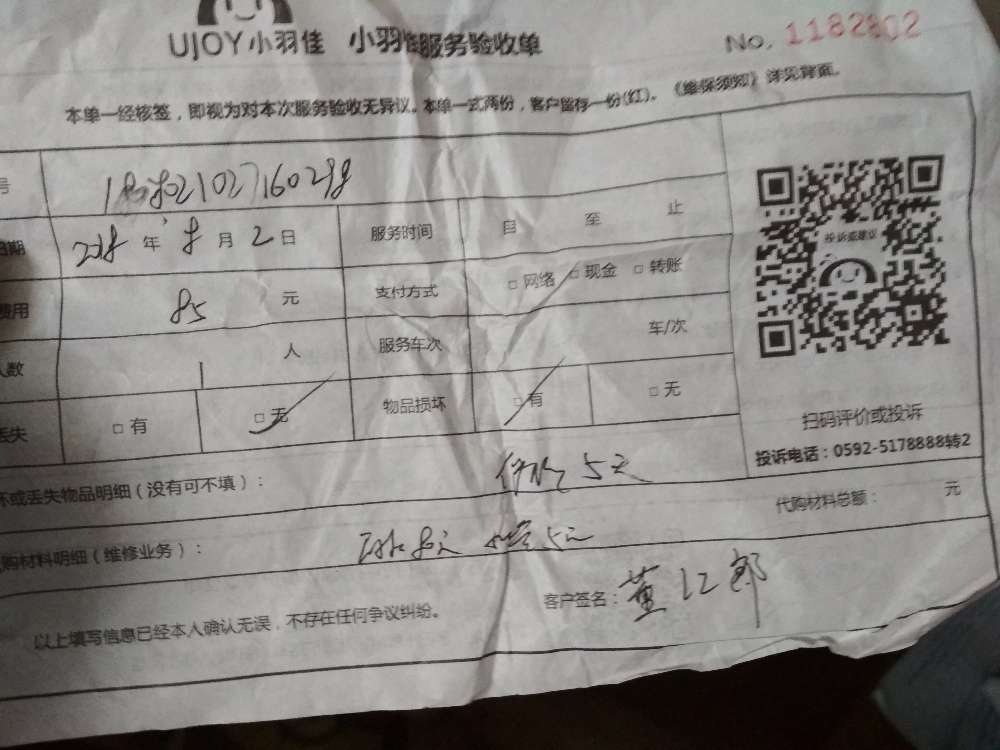 UJOY小羽佳 小羽佳服务验收单 No. 1182802
本单一经核签，即视为对本次服务验收无异议。本单一式两份，客户留存一份(红)。《维保须知》详见背面。
号
日期 2018 年 8 月 2 日 服务时间 自 至 止
费用 85 元 支付方式 □ 网络 □ 现金 □ 转账
人数 1 人 服务车次 车/次
丢失 □ 有 □ 无 物品损坏 □ 有 □ 无
投诉或建议
扫码评价或投诉
投诉电话：0592-5178888转2
坏或丢失物品明细（没有可不填）： 5元
购材料明细（维修业务）： 5元 代购材料总额： 元
以上填写信息已经本人确认无误，不存在任何争议纠纷。 客户签名：董江郎